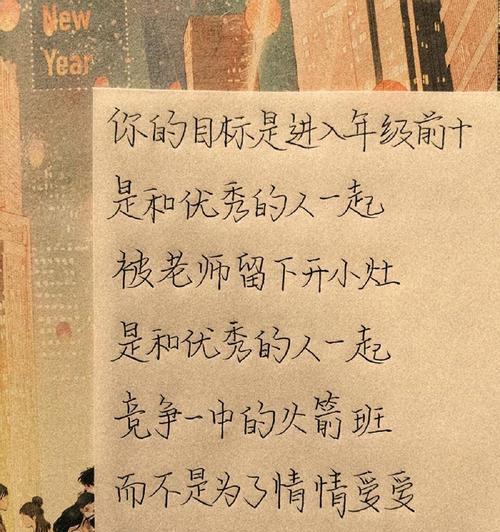 New
Year
你的目标是进入年级前十
是和优秀的人一起
被老师留下开小灶
是和优秀的人一起
竞争一中的火箭班
而不是为了情情爱爱